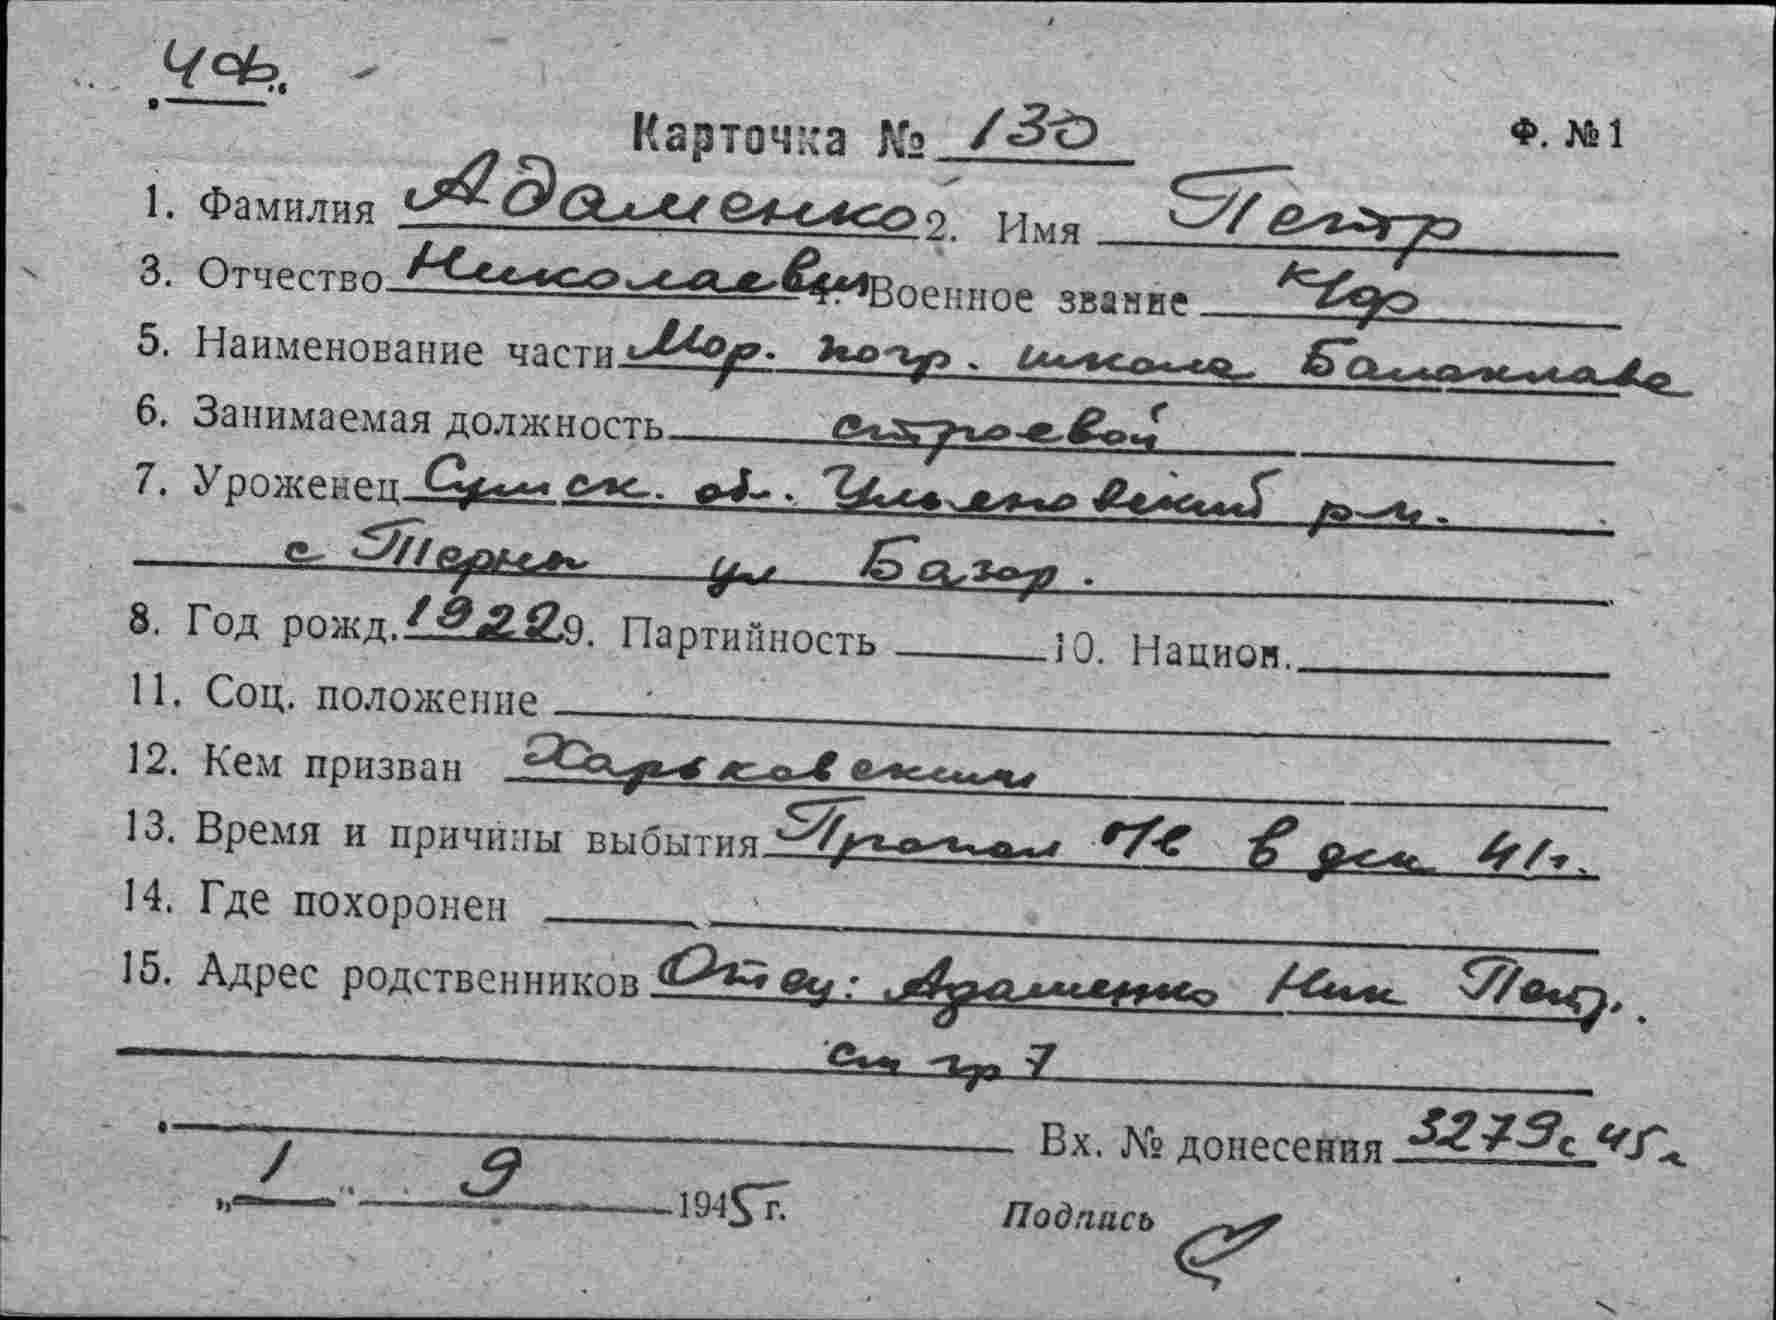 ЧФ.
Карточка № 130 Ф. №1
1. Фамилия Адаменко 2. Имя Петр
3. Отчество Николаевич 4. Военное звание кр
5. Наименование части Мор. погр. школа Балаклава
6. Занимаемая должность строевой
7. Уроженец Сумск. об. Ульяновский р-н.
с Терны ул Базар.
8. Год рожд. 1922 9. Партийность 10. Национ.
11. Соц. положение
12. Кем призван Харьковским
13. Время и причины выбытия Пропал в дек 41г.
14. Где похоронен
15. Адрес родственников Отец: Адаменко Ник Петр.
см гр 7
Вх. № донесения 3279с 45г
„1" 9 1945 г. Подпись